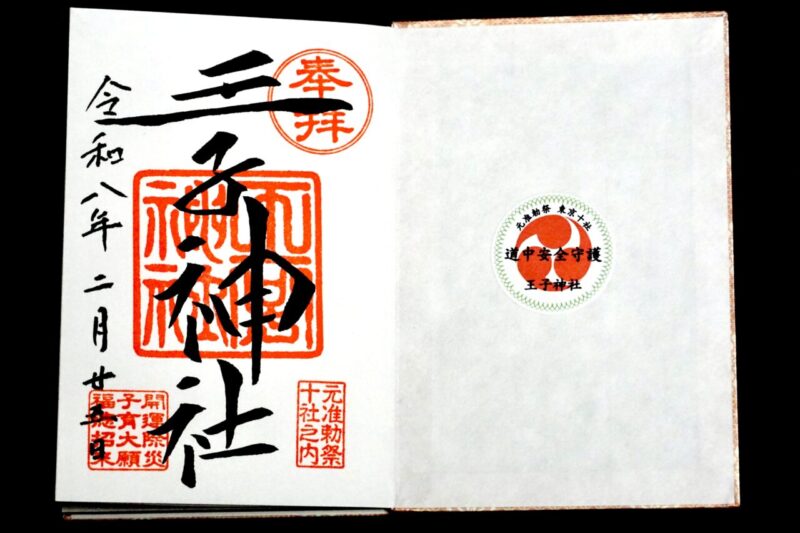 奉拝
王子神社
元准勅祭
十社之内
令和八年二月廿五日
開運除災
子育大願
福徳招来
元准勅祭 東京十社
道中安全守護
王子神社